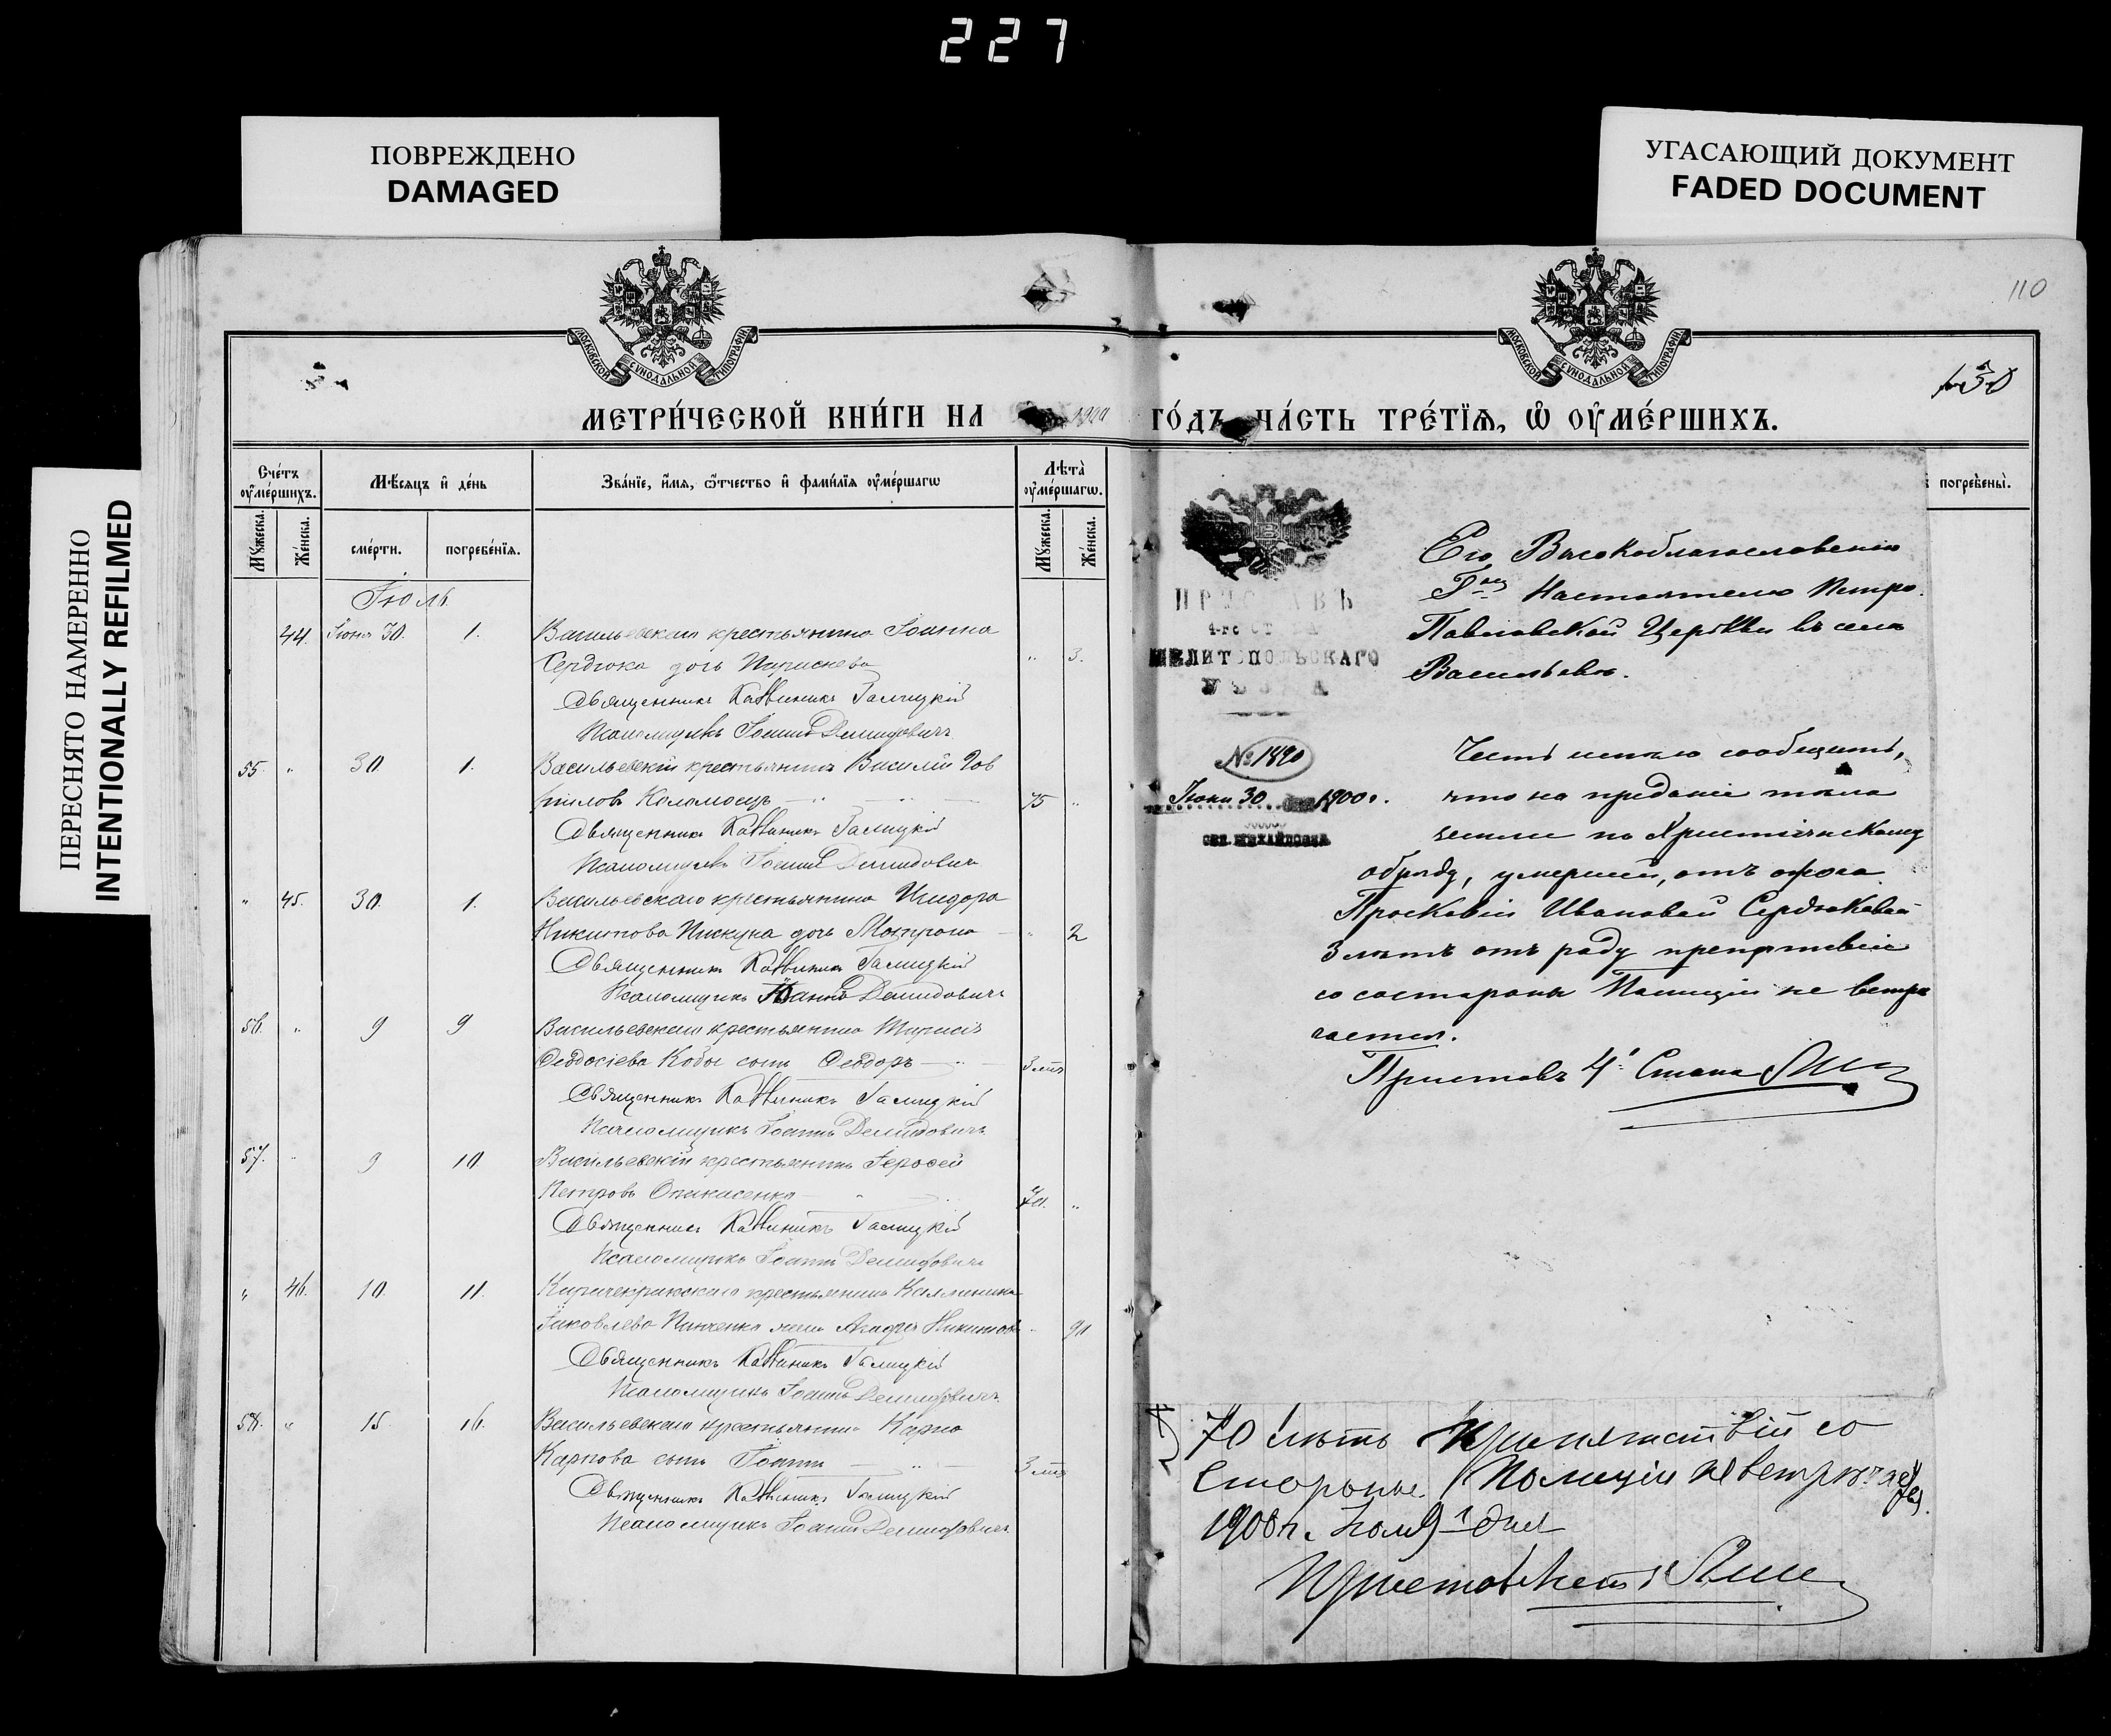 227
ПОВРЕЖДЕНО
DAMAGED
УГАСАЮЩИЙ ДОКУМЕНТ
FADED DOCUMENT
ПЕРЕСНЯТО НАМЕРЕННО
INTENTIONALLY REFILMED
110
МОСКОВСКОЙ СѴНОДАЛЬНОЙ ТИПОГРАФІИ
МОСКОВСКОЙ СѴНОДАЛЬНОЙ ТИПОГРАФІИ
МЕТРИ́ЧЕСКОЙ КНИ́ГИ НА 1900 ГО́ДЪ ЧА́СТЬ ТРЕ́ТЇѦ, Ѡ҆ ОУ҆МЕ́РШИХЪ.
Сче́тъ оу҆ме́ршихъ.
Мѣ́сяцъ и҆ де́нь
Зва́нїе, и҆́мѧ, ѻ҆́тчество и҆ фами́лїѧ оу҆ме́ршагѡ
Лѣта̀ оу҆ме́ршагѡ.
погребены̀.
Мꙋ́жеска.
Же́нска.
сме́рти.
погребе́нїѧ.
Мꙋ́жеска.
Же́нска.
Іюль.
44. Іюня 30. 1. Васильевскаго крестьянина Іоанна
Сердюка дочь Параскева " 3.
Священникъ Каллиникъ Галицкій
Псаломщикъ Іоаннъ Демидовичъ
55. " 30. 1. Васильевскій крестьянинъ Василій
Коломоецъ 75 "
Священникъ Каллиникъ Галицкій
Псаломщикъ Іоаннъ Демидовичъ
" 45. 30. 1. Васильевскаго крестьянина Исидора
Никитова Пискуна дочь Матрона " 2
Священникъ Каллиникъ Галицкій
Псаломщикъ Іоаннъ Демидовичъ
56. " 9 9 Васильевскаго крестьянина
Феодосіева Кобы сынъ Феодоръ 3
Священникъ Каллиникъ Галицкій
Псаломщикъ Іоаннъ Демидовичъ
57. " 9 10 Васильевскій крестьянинъ
Петровъ 70. "
Священникъ Каллиникъ Галицкій
Псаломщикъ Іоаннъ Демидовичъ
" 46. 10. 11. крестьянина Каллиника
Яковлева жена Никитова " 90
Священникъ Каллиникъ Галицкій
Псаломщикъ Іоаннъ Демидовичъ
58. " 15 16. Васильевскаго крестьянина Карпа
Карпова сынъ Іоаннъ 3
Священникъ Каллиникъ Галицкій
Псаломщикъ Іоаннъ Демидовичъ
ПРИСТАВЪ
4-го СТАНА
МЕЛИТОПОЛЬСКАГО
УѢЗДА
№ 1890
Іюня 30 дня 1900 г.
СЕЛ. МИХАЙЛОВКА
Его Высокоблагословенію
Настоятелю Петро-
Павловской Церкви въ селѣ
Васильевкѣ.
Честь имѣю сообщить,
что на преданіе тѣла
землѣ по Христіанскому
обряду, умершей, отъ ожога
Просковіи Ивановой Сердюковой
3 лѣтъ отъ роду препятствіе
со стороны Полиціи не встрѣ
чается.
Приставъ 4 Стана
70 лѣтъ препятствій со
Стороны Полиціи не встрѣчается
1900 г. Іюля 9 дня
Приставъ